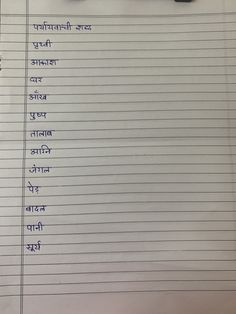 पर्यायवाची शब्द
पृथ्वी
आकाश
घर
आँख
पुष्प
तालाब
अग्नि
जंगल
पेड़
बादल
पानी
सूर्य